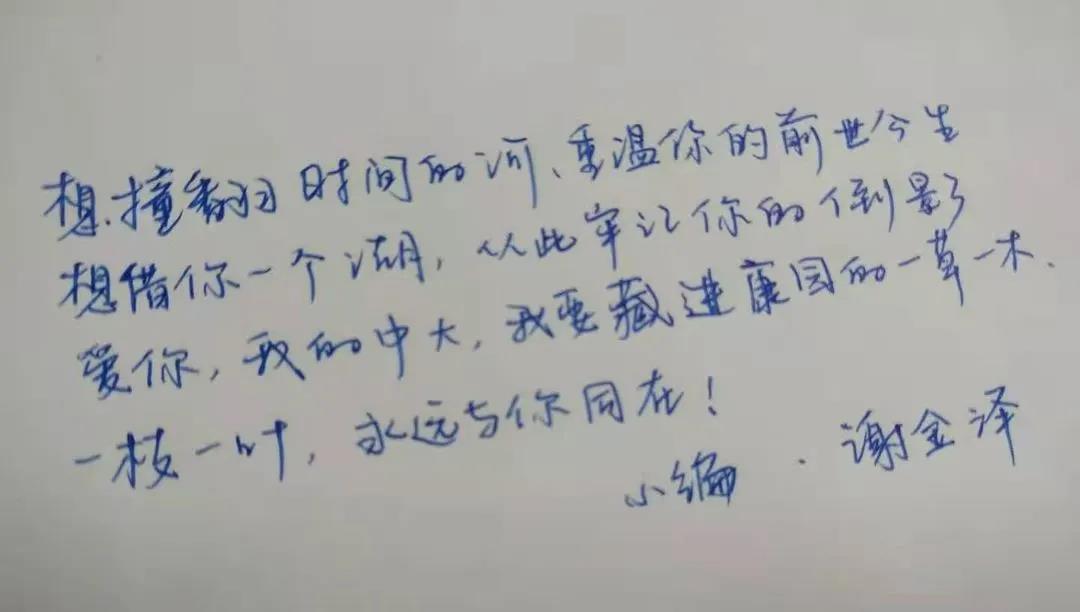 想撞翻时间的河、重温你的前世今生
想借你一个湖，从此牢记你的倒影
爱你，我的中大，我要藏进康园的一草一木、
一枝一叶，永远与你同在！
小编 · 谢金泽